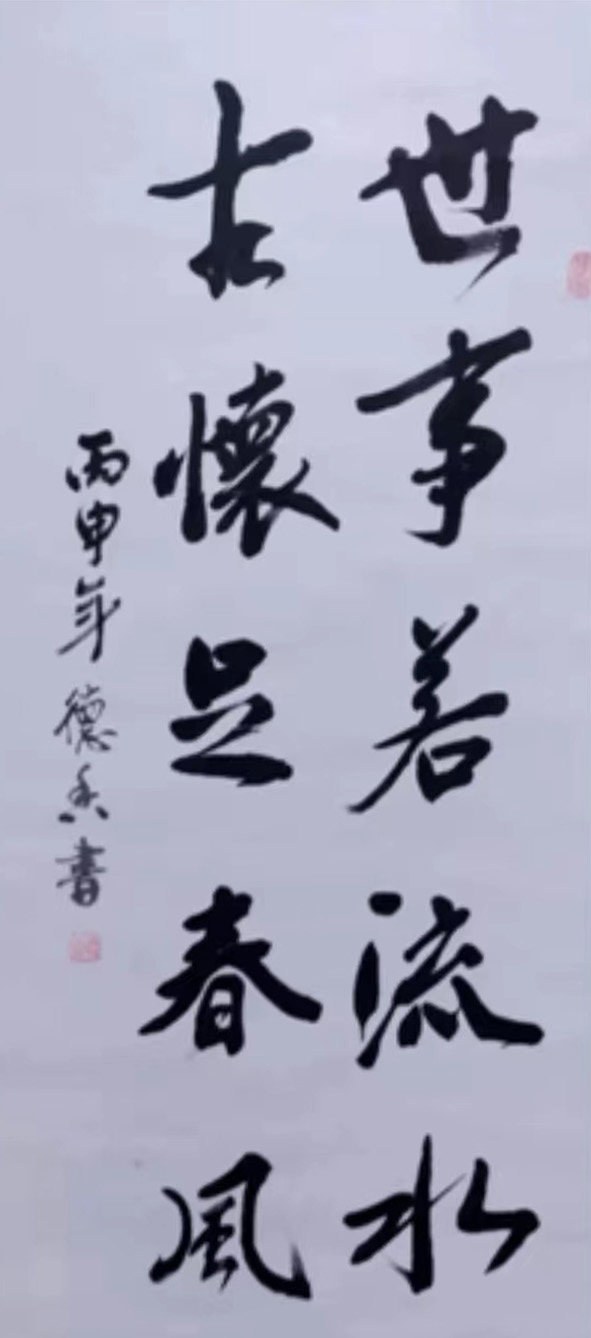 世事若流水
古懷足春風
丙申年德書